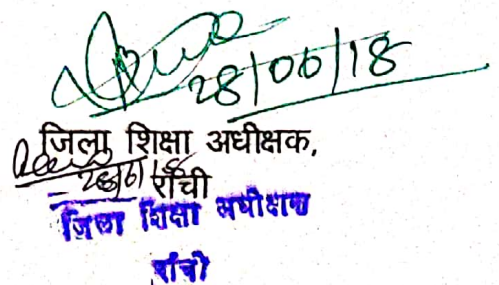 28/06/18
जिला शिक्षा अधीक्षक,
28/6/18 राँची
जिला शिक्षा अधीक्षक
राँची